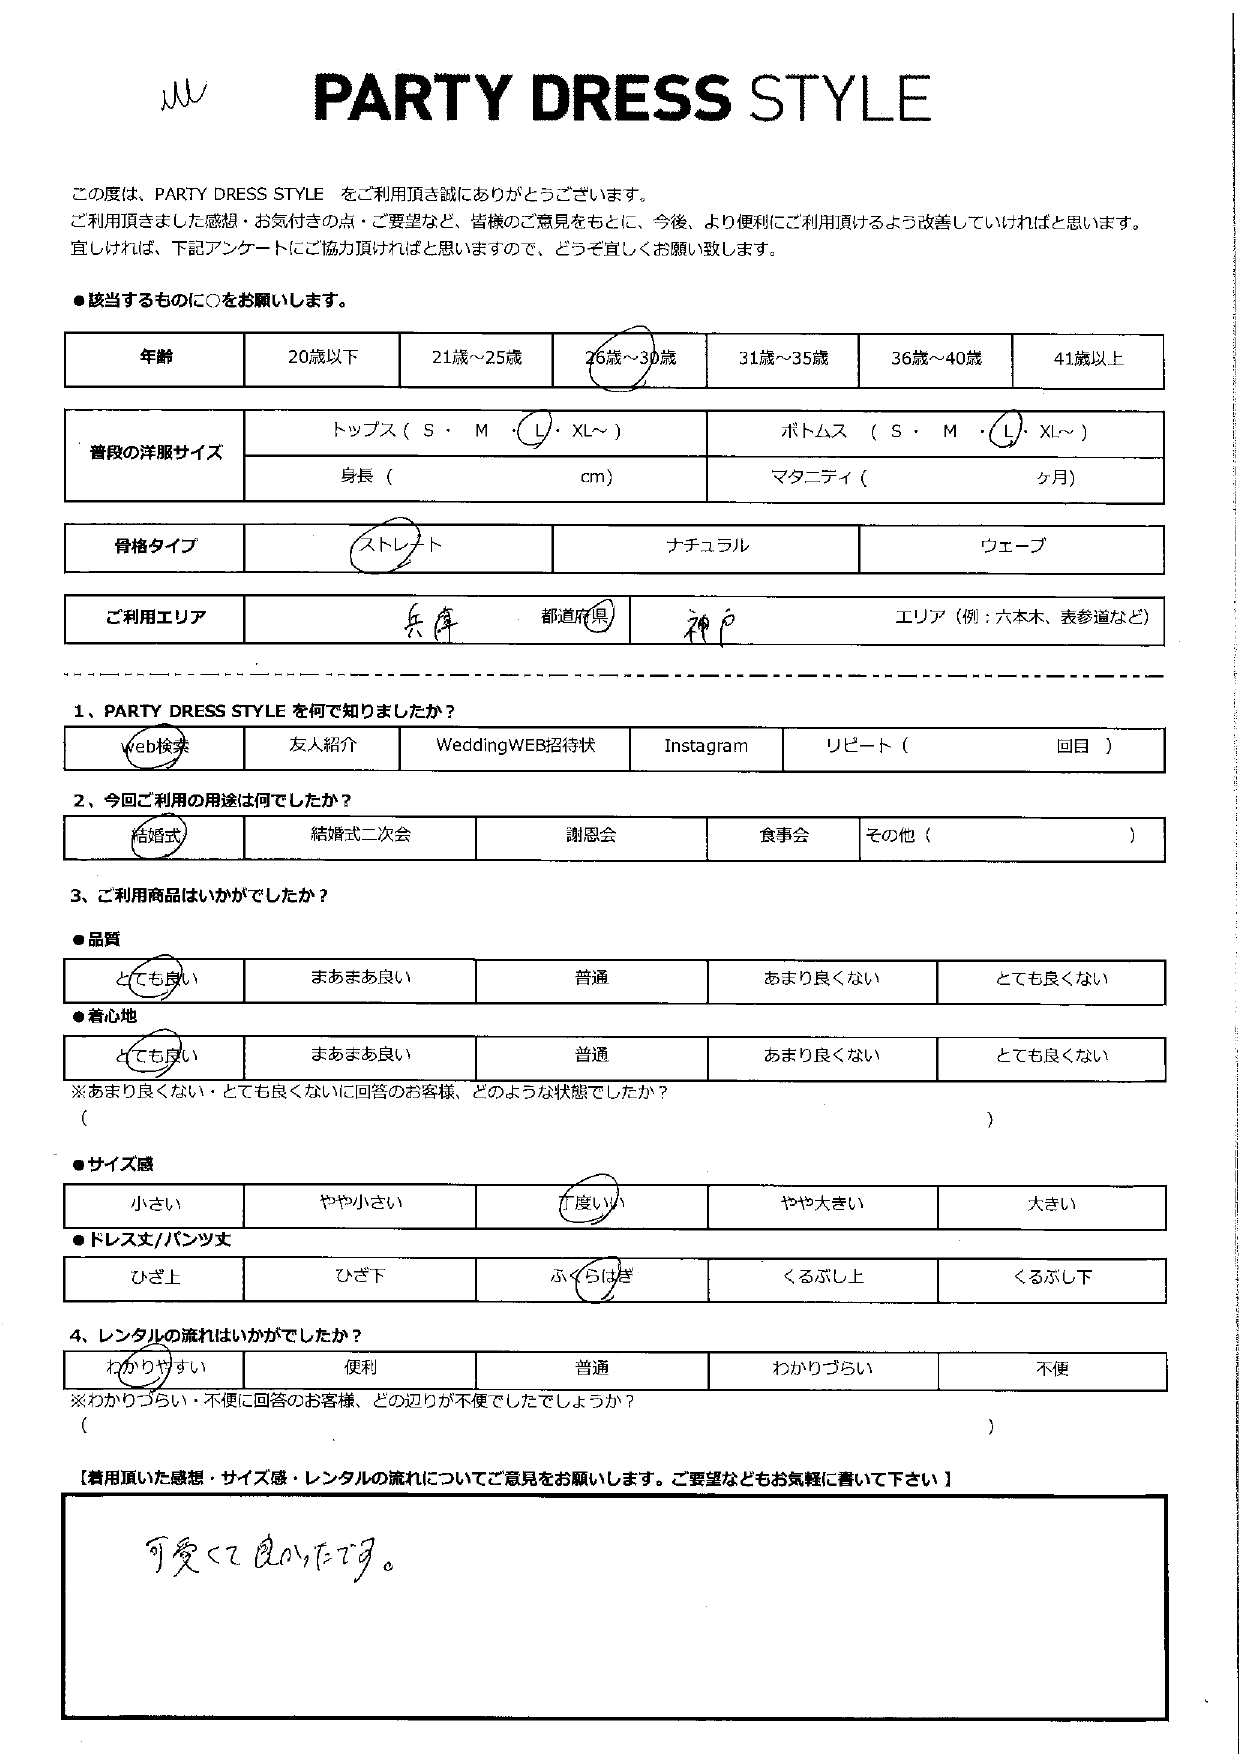 PARTY DRESS STYLE
この度は、PARTY DRESS STYLE をご利用頂き誠にありがとうございます。
ご利用頂きました感想・お気付きの点・ご要望など、皆様のご意見をもとに、今後、より便利にご利用頂けるよう改善していければと思います。
宜しければ、下記アンケートにご協力頂ければと思いますので、どうぞ宜しくお願い致します。
●該当するものに○をお願いします。
年齢 20歳以下 21歳～25歳 26歳～30歳 31歳～35歳 36歳～40歳 41歳以上
普段の洋服サイズ トップス ( S ・ M ・ L ・ XL～ ) ボトムス ( S ・ M ・ L ・ XL～ )
身長 ( cm) マタニティ ( ヶ月)
骨格タイプ ストレート ナチュラル ウェーブ
ご利用エリア 兵庫 都道府県 神戸 エリア（例：六本木、表参道など）
1、PARTY DRESS STYLE を何で知りましたか？
web検索 友人紹介 WeddingWEB招待状 Instagram リピート ( 回目 )
2、今回ご利用の用途は何でしたか？
結婚式 結婚式二次会 謝恩会 食事会 その他 ( )
3、ご利用商品はいかがでしたか？
●品質
とても良い まあまあ良い 普通 あまり良くない とても良くない
●着心地
とても良い まあまあ良い 普通 あまり良くない とても良くない
※あまり良くない・とても良くないに回答のお客様、どのような状態でしたか？
( )
●サイズ感
小さい やや小さい 丁度いい やや大きい 大きい
●ドレス丈/パンツ丈
ひざ上 ひざ下 ふくらはぎ くるぶし上 くるぶし下
4、レンタルの流れはいかがでしたか？
わかりやすい 便利 普通 わかりづらい 不便
※わかりづらい・不便に回答のお客様、どの辺りが不便でしたでしょうか？
( )
【着用頂いた感想・サイズ感・レンタルの流れについてご意見をお願いします。ご要望などもお気軽に書いて下さい】
可愛くて良かったです。